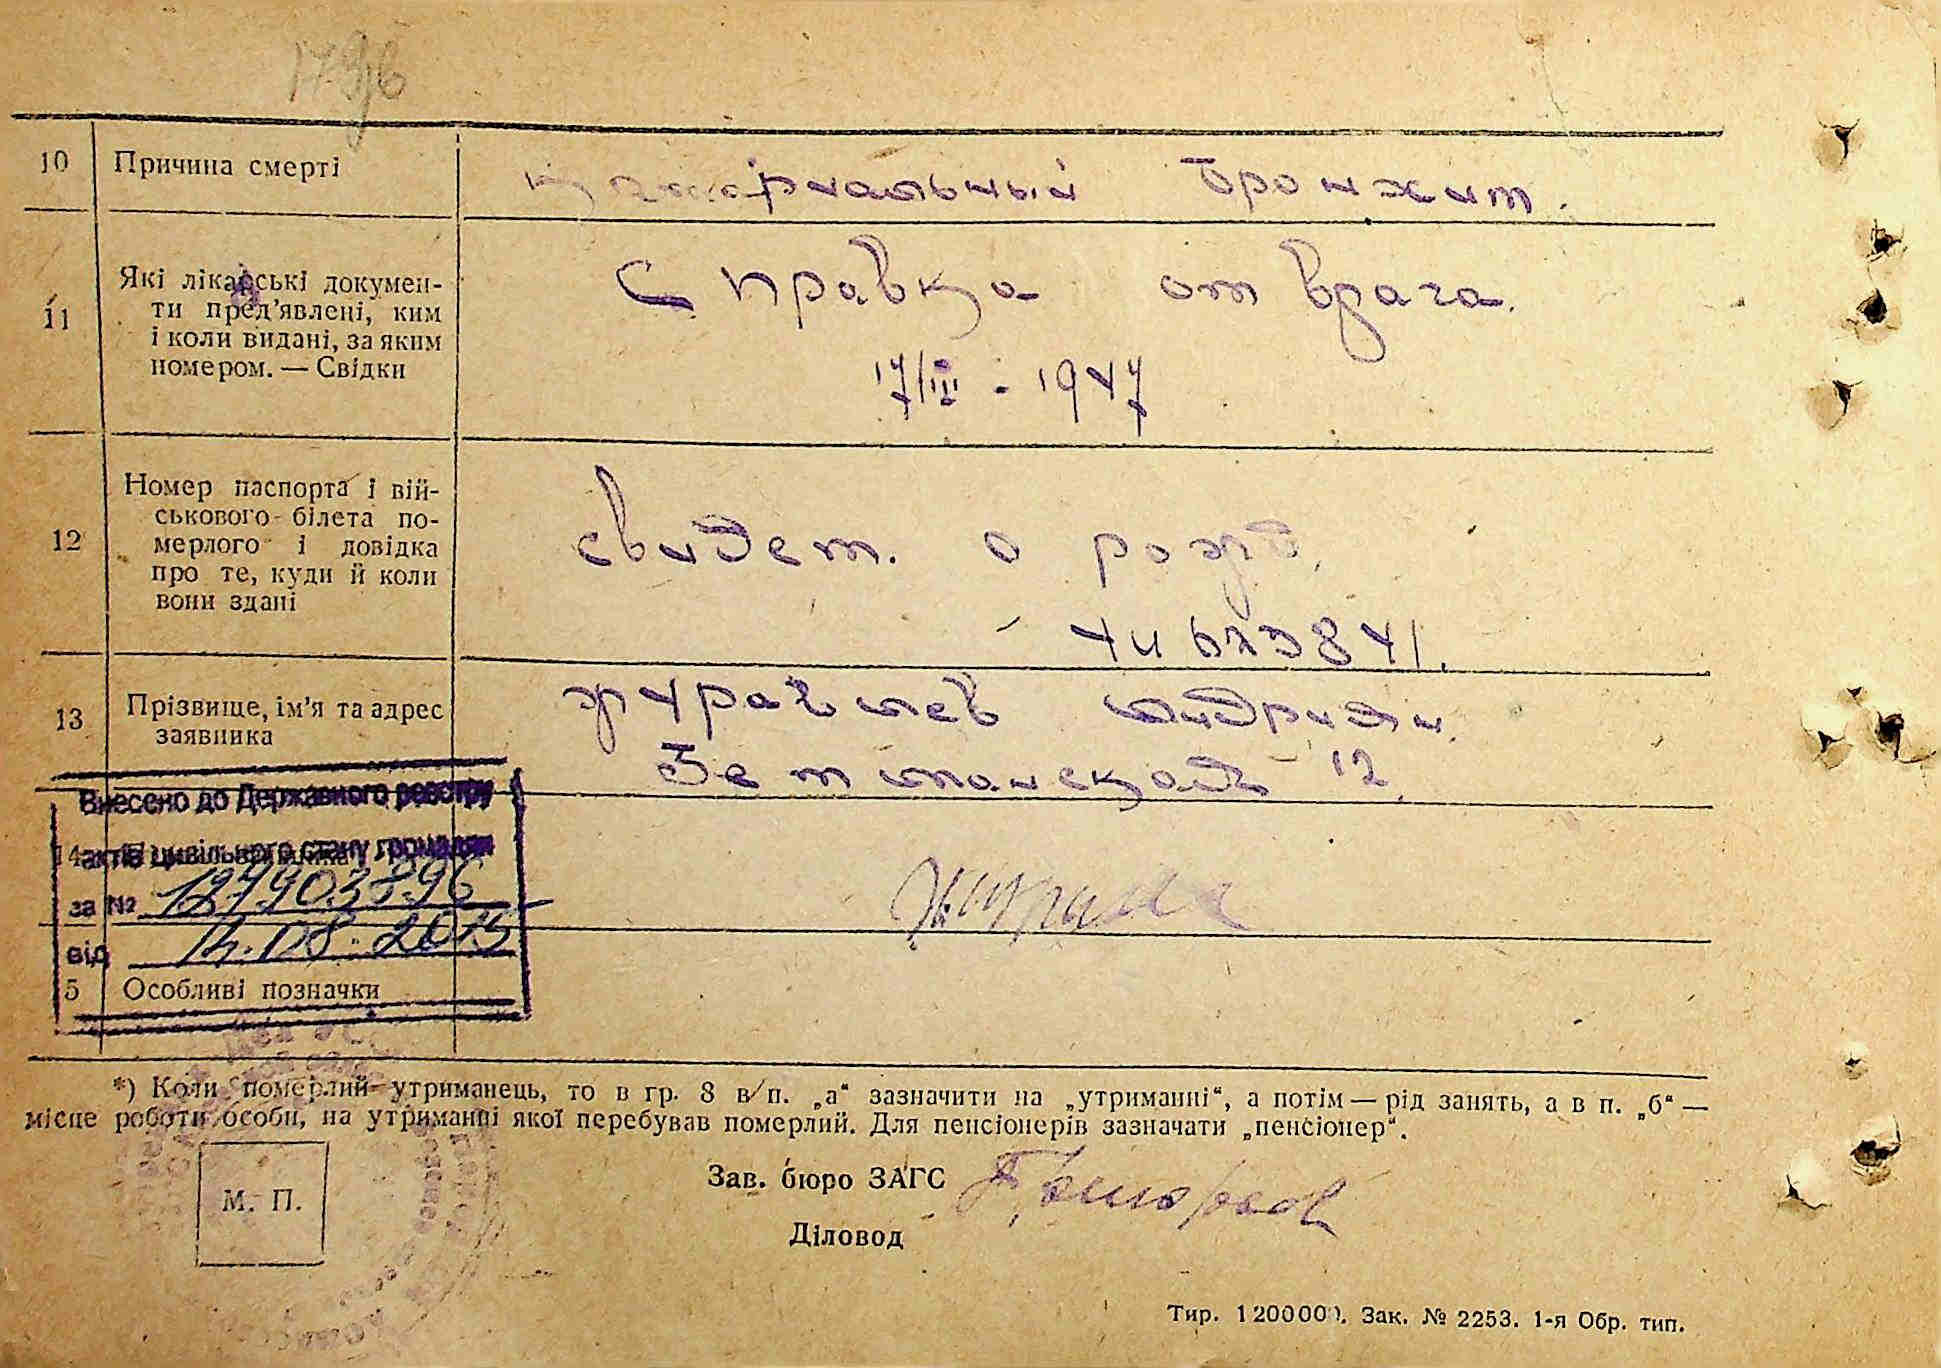 1796
10 Причина смерті
катаральный бронхит.
11 Які лікарські докумен-
ти пред’явлені, ким
і коли видані, за яким
номером. — Свідки
Справка от врача.
17/III - 1947
12 Номер паспорта і вій-
ськового білета по-
мерлого і довідка
про те, куди й коли
вони здані
свидет. о рожд.
13 Прізвище, ім’я та адрес
заявника
Журавлев
12
Внесено до Державного реєстру
актів цивільного стану громадян
за № 127903896
від 12.08.2015
5 Особливі позначки
*) Коли померлий утриманець, то в гр. 8 в п. „а“ зазначити на „утриманні“, а потім — рід занять, а в п. „б“ —
місце роботи особи, на утриманні якої перебував померлий. Для пенсіонерів зазначати „пенсіонер“.
М. П.
Зав. бюро ЗАГС
Діловод
Тир. 120000. Зак. № 2253. 1-я Обр. тип.